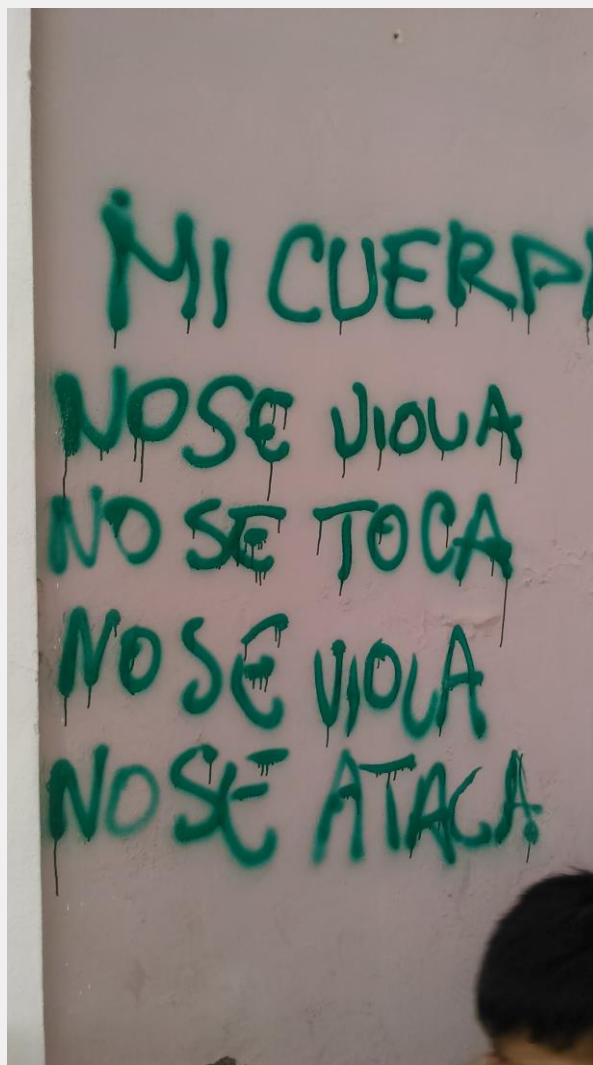 MI CUERPO
NO SE VIOLA
NO SE TOCA
NO SE VIOLA
NO SE ATACA